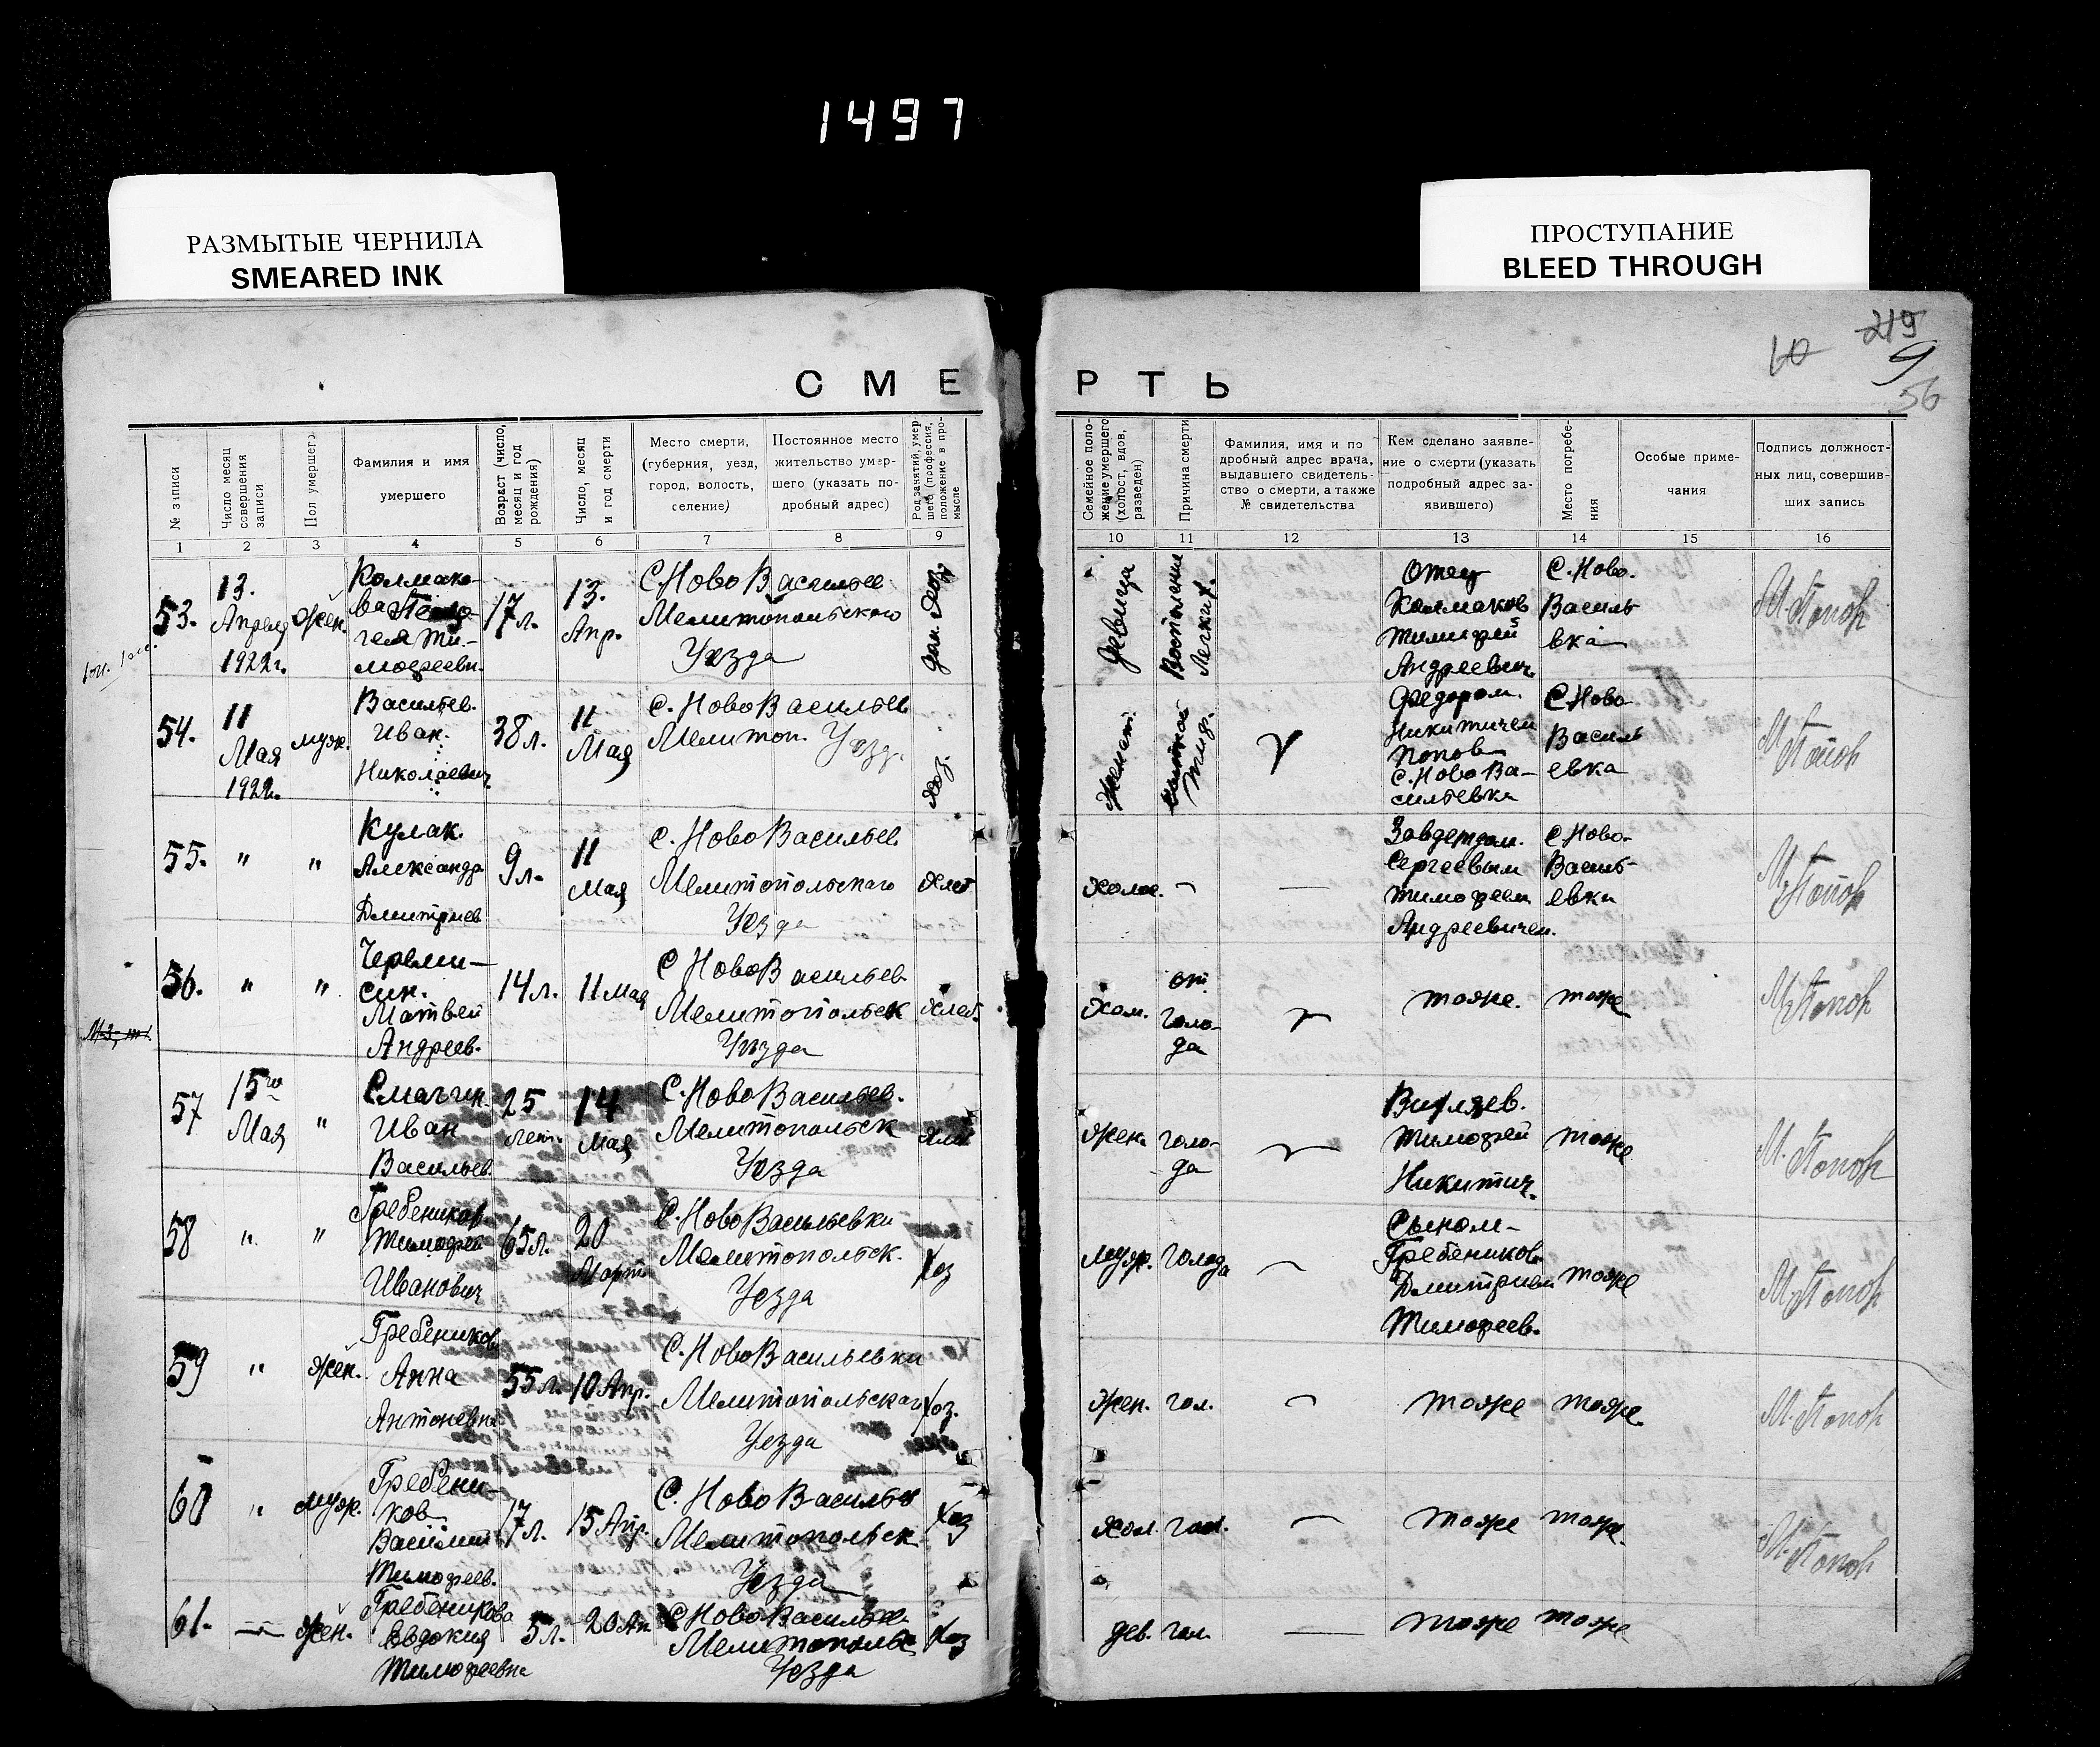 1497
РАЗМЫТЫЕ ЧЕРНИЛА
SMEARED INK
ПРОСТУПАНИЕ
BLEED THROUGH
219
10
9
56
СМЕРТЬ
№ записи
Число месяц совершения записи
Пол умершего
Фамилия и имя
умершего
Возраст (число, месяц и год рождения)
Число, месяц и год смерти
Место смерти,
(губерния, уезд,
город, волость,
селение)
Постоянное место
жительство умер-
шего (указать по-
дробный адрес)
Род занятий, умер-
шего (профессия,
положение в про-
мысле
Семейное поло-
жение умершего
(холост, вдов,
разведен)
Причина смерти
Фамилия, имя и по
дробный адрес врача,
выдавшего свидетель-
ство о смерти, а также
№ свидетельства
Кем сделано заявле-
ние о смерти (указать
подробный адрес за-
явившего)
Место погребе-
ния
Особые приме-
чания
Подпись должност-
ных лиц, совершив-
ших запись
1 2 3 4 5 6 7 8 9 10 11 12 13 14 15 16
53.
13.
Апреля
1922г.
жен.
Колмако-
ва
гея Ти-
мофеевн.
17л.
13.
Апр.
С. Ново Василье
Мелитопольского
Уезда
девица
Восполение
Легких.
Отец
Колмаков
Тимофей
Андреевич
С. Ново.
Василь
евка
М. Попов
54.
11
Мая
1922г.
муж.
Васильев.
Иван.
Николаевич
38л.
11
Мая
С. Ново Васильев
Мелитоп. Уезд.
хоз.
Женат.
тиф.
Федором.
Никитичем
Попов
С. Ново Ва-
сильевка
С. Ново
Василь
евка
М. Попов
55.
"
"
Кулак.
Александр
Дмитриев
9л.
11
Мая
С. Ново Васильев.
Мелитопольскаго
Уезда
хлеб
холос.
—
Завдетдом.
Сергеевым
Тимофеем
Андреевичем.
С. Ново.
Василь-
евка
М. Попов
56.
"
"
Череми-
син.
Матвей
Андреев.
14л.
11 мая
С Ново Васильев.
Мелитопольск
Уезда
хлеб.
Хол.
от.
голо-
да
тоже.
тоже
М. Попов
57
15го
Мая
"
Смагин.
Иван
Васильев.
25
лет.
14
Мая
С. Ново Васильев.
Мелитопольск
Уезда
хлеб
жен.
голо-
да
Тимофей
Никитич.
тоже
М. Попов
58
"
"
Гребеников
Тимофей
Иванович
65л.
20
Март
С. Ново Васильевки
Мелитопольск.
Уезда
Хоз
муж.
голода
Сыном-
Гребеников
Дмитрием
Тимофеев.
тоже
М. Попов
59
"
жен.
Гребеников
Анна
Антоневна
55л.
10 Апр.
С. Ново Васильевки
Мелитопольскаго
Уезда
Хоз.
жен.
гол.
тоже
тоже.
М. Попов
60
"
муж.
Гребени-
ков
Василий
Тимофеев.
17л.
15 Апр.
С. Ново Василье
Мелитопольск.
Уезда
Хоз
хол.
гол.
тоже
тоже.
М. Попов
61.
жен.
Гребеникова
Евдокия
Тимофеевна
5л.
20 Ап
С Ново Василье.
Мелитопольс
Уезда
Хоз
дев.
гол.
тоже
тоже